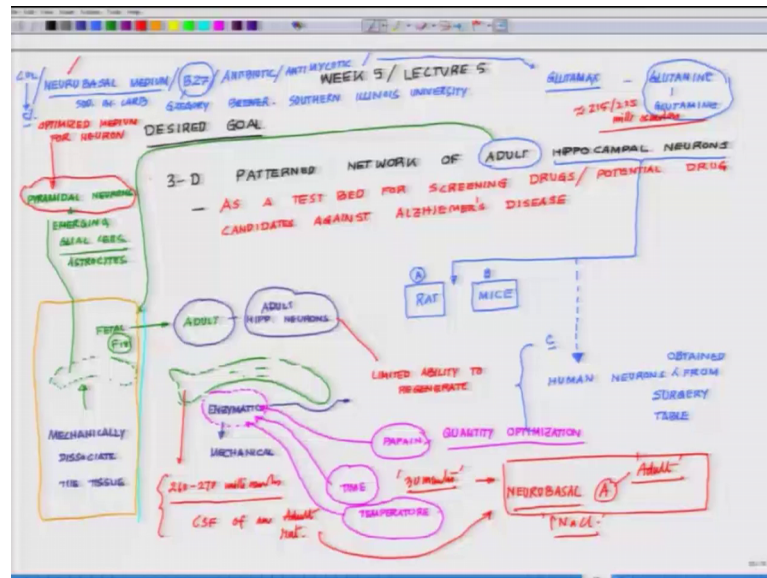 NEUROBASAL MEDIUM / B27 / ANTIBIOTIC / ANTIMYCOTIC /
WEEK 5 / LECTURE 5
GLUTAMAX - GLUTAMINE
GLUTAMINE
GREGORY BREWER. SOUTHERN ILLINOIS UNIVERSITY
OPTIMIZED MEDIUM
FOR NEURON
215/235
DESIRED GOAL
3-D PATTERNED NETWORK OF ADULT HIPPOCAMPAL NEURONS
- AS A TEST BED FOR SCREENING DRUGS / POTENTIAL DRUG
CANDIDATES AGAINST ALZHIEMER'S DISEASE
PYRAMIDAL NEURONS
EMERGING
GLIAL CELLS
ASTROCYTES
A
RAT
B
MICE
FETAL
ADULT
ADULT
HIPP. NEURONS
LIMITED ABILITY TO
REGENERATE
C
HUMAN NEURONS
OBTAINED
FROM
SURGERY
TABLE
MECHANICALLY
DISSOCIATE
THE TISSUE
ENZYMATIC
MECHANICAL
PAPAIN
QUANTITY OPTIMIZATION
TIME
TEMPERATURE
CSF OF an Adult
rat.
NEUROBASAL A 'Adult'
'NaCl'